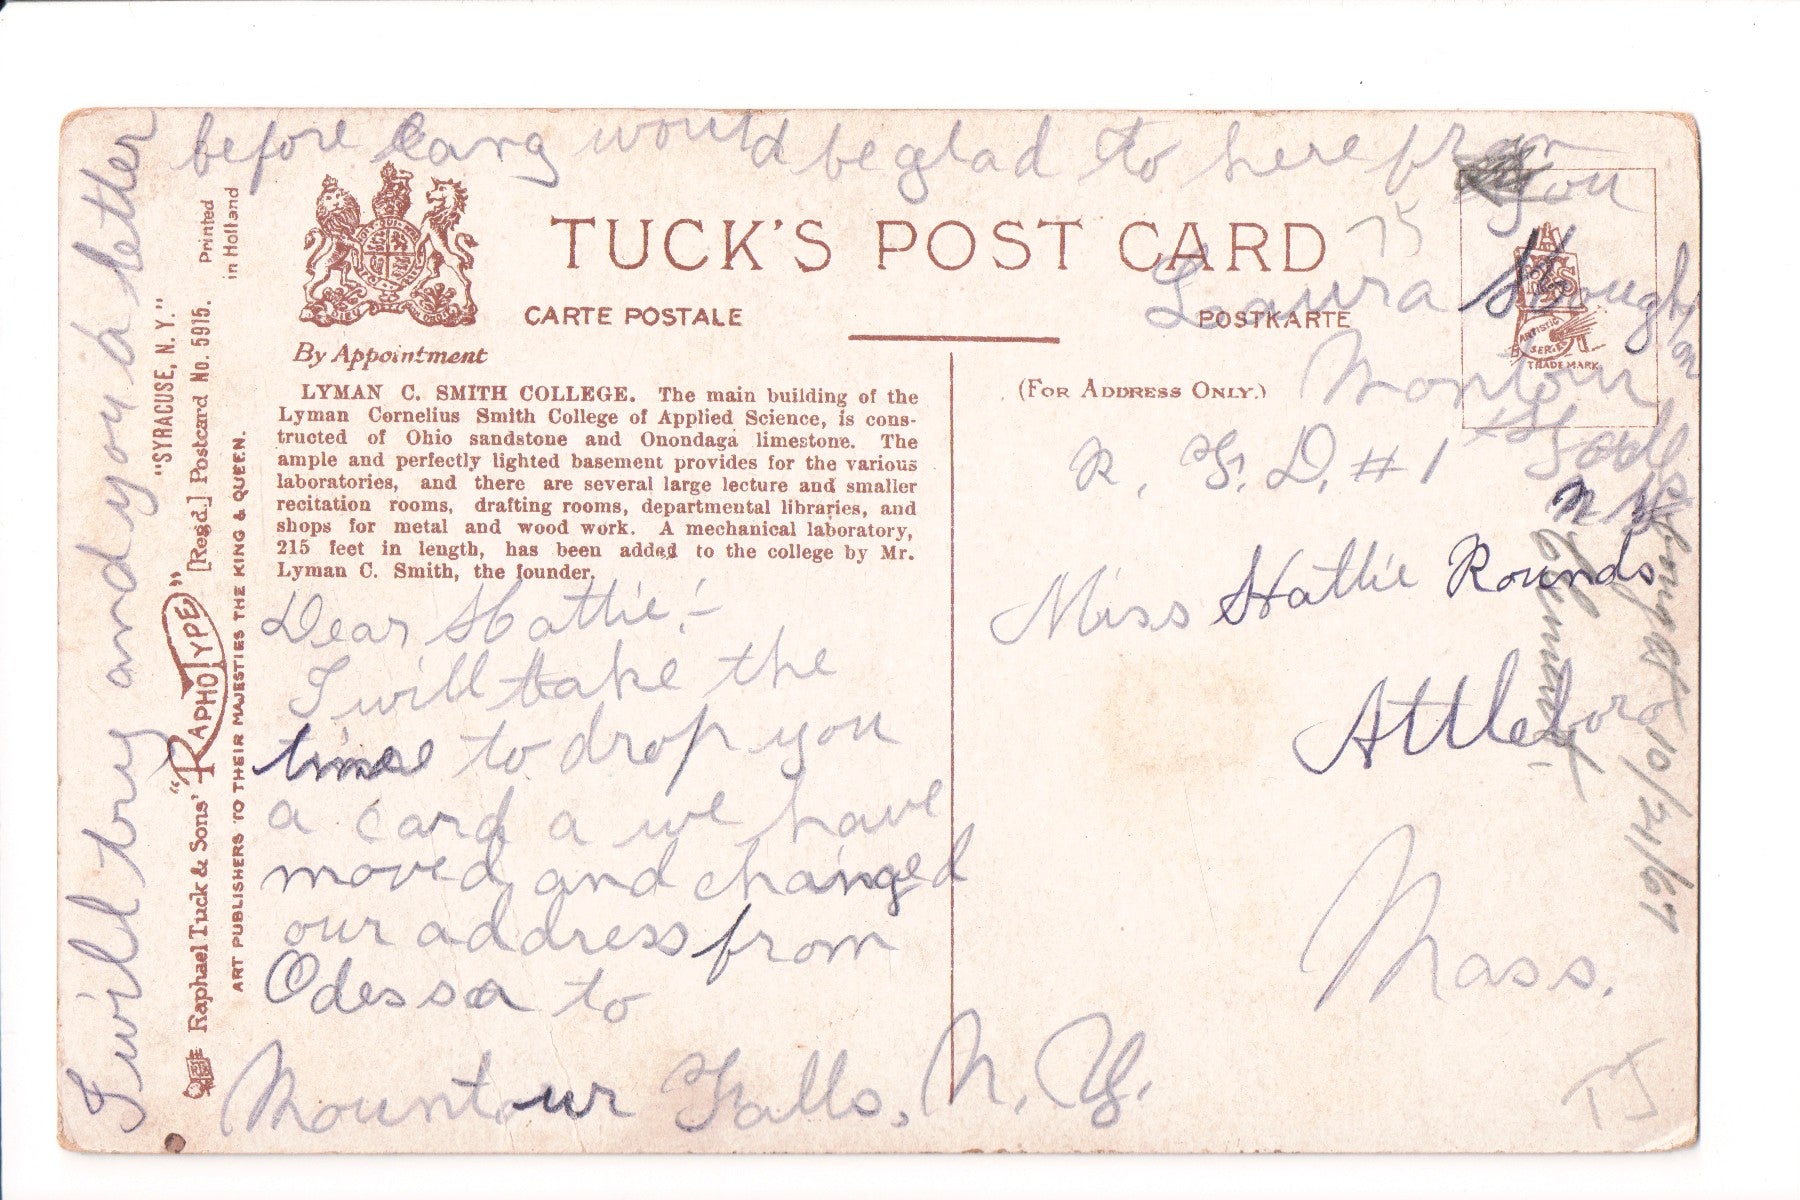 TUCK'S POST CARD
CARTE POSTALE
POSTKARTE
By Appointment
(FOR ADDRESS ONLY.)
LYMAN C. SMITH COLLEGE. The main building of the
Lyman Cornelius Smith College of Applied Science, is cons-
tructed of Ohio sandstone and Onondaga limestone. The
ample and perfectly lighted basement provides for the various
laboratories, and there are several large lecture and smaller
recitation rooms, drafting rooms, departmental libraries, and
shops for metal and wood work. A mechanical laboratory,
215 feet in length, has been added to the college by Mr.
Lyman C. Smith, the founder.
Dear Hattie:-
I will take the
time to drop you
a card a we have
moved and changed
our address from
Odessa to
Mountour Falls, N. Y.
I will try and you a letter
before long would be glad to here from
you
Laura Houghton
Montour
Falls
N Y
R. F. D. #1
Miss Hattie Rounds
Attleboro
Mass.
75
10/21/67
TJ
"SYRACUSE, N. Y."
[Regd.] Postcard No. 5915.
Printed
in Holland
Raphael Tuck & Sons' "RAPHOTYPE"
ART PUBLISHERS TO THEIR MAJESTIES THE KING & QUEEN.
ARTISTIC
SERIES
TRADE MARK